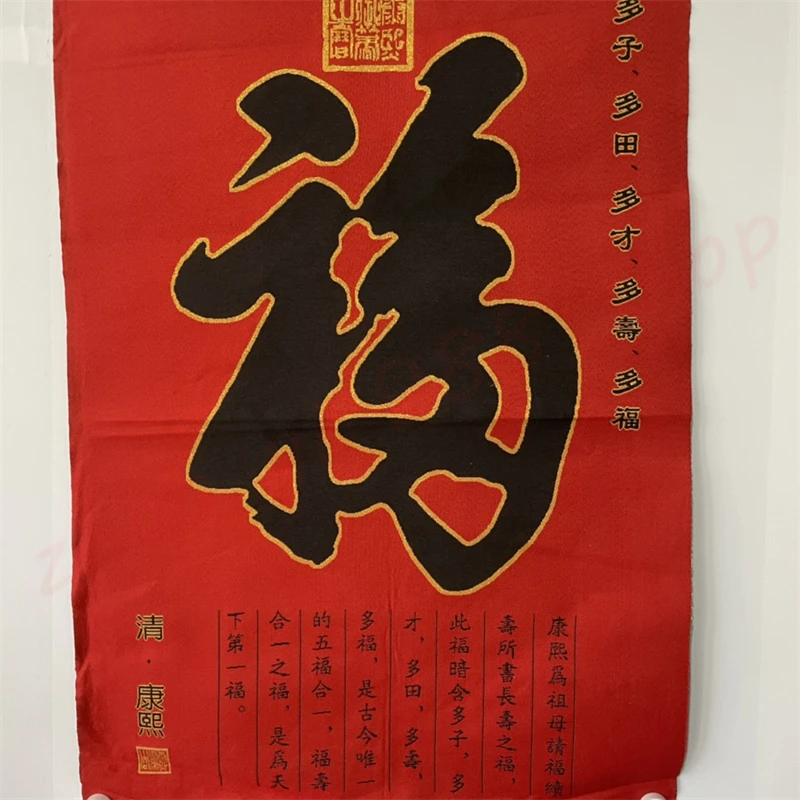 康熙御筆之寶
多子、多田、多才、多壽、多福
福
康熙爲祖母請福續
壽所書長壽之福，
此福暗含多子，多
才，多田，多壽，
多福，是古今唯一
的五福合一，福壽
合一之福，是爲天
下第一福。
清·康熙